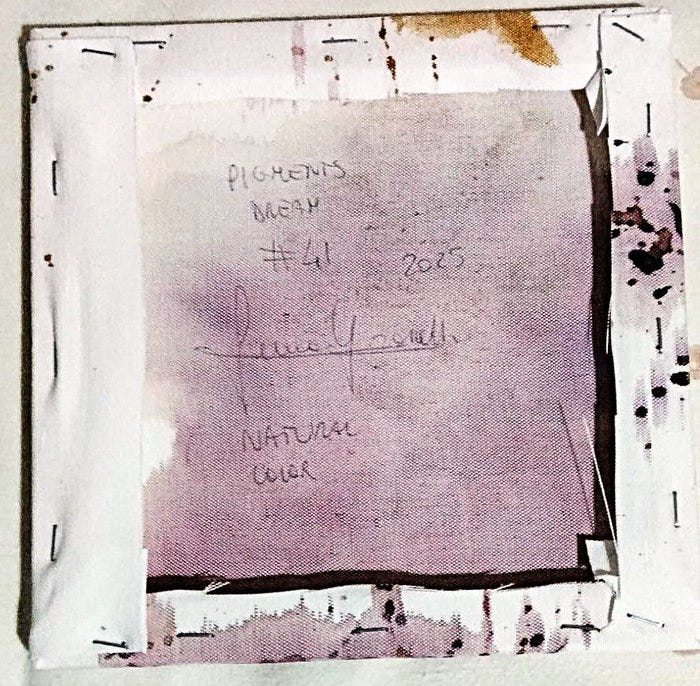 PIGMENTS
DREAM
#41 2025
NATURAL
COLOR